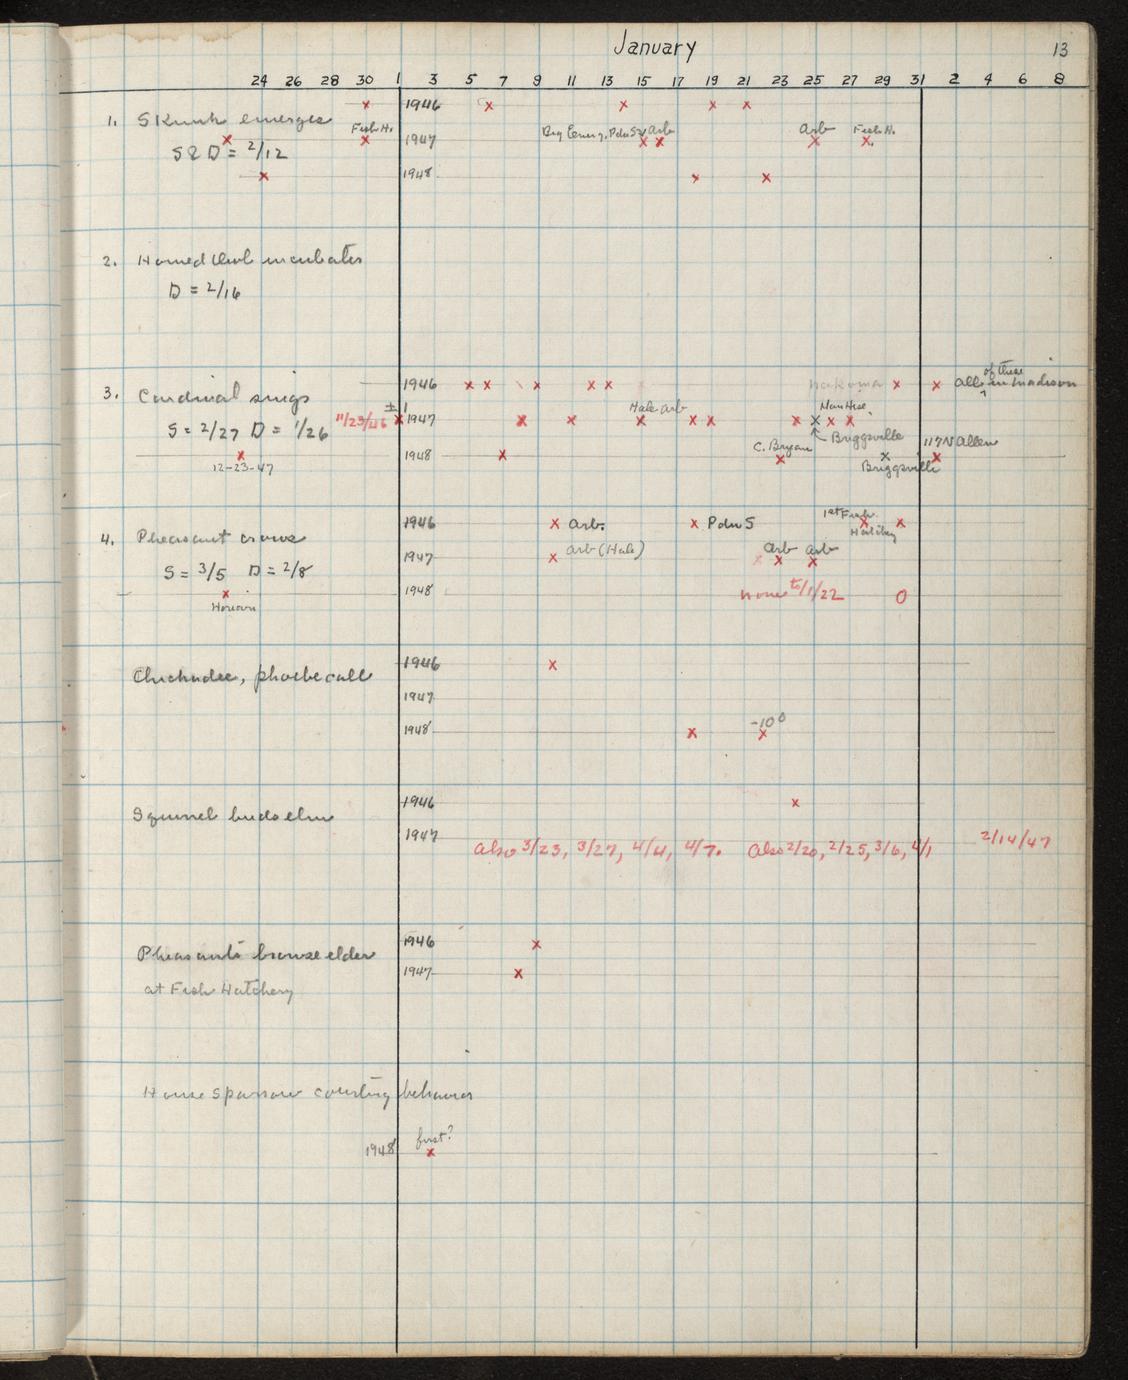 January
13
24 26 28 30 1 3 5 7 9 11 13 15 17 19 21 23 25 27 29 31 2 4 6 8
1. Skunk emerges
x 1946 x x x x
S & D = 2/12
x Fish H. x 1947 Big Emerg. Pdn S x Arb x Arb x Fish H. x
x 1948 x x
2. Horned Owl incubates
D = 2/16
3. Cardinal sings
1946 x x x x x Nakoma x x all of these in Madison
S = 2/27 D = 1/26
11/23/46 ± 1 x 1947 x x Hale Arb x x x x x Briggsville x Nan Hse. x
x 12-23-47
1948 x C. Bryan x x Briggsville 117 N Allen x
4. Pheasant crows
1946 x Arb. x Pdn S 1st Fish Hatchery x x
S = 3/5 D = 2/8
1947 x arb (Hale) x Arb x Arb x
x Horicon
1948 none to 1/22 0
Chickadee, phoebe call
1946 x
1947
1948 x -10° x
Squirrel buds elm
1946 x
1947 also 3/23, 3/27, 4/4, 4/7. Also 2/20, 2/25, 3/6, 4/1 2/14/47
Pheasants browse elder
at Fish Hatchery
1946 x
1947 x
House Sparrow courting behavior
1948 first? x